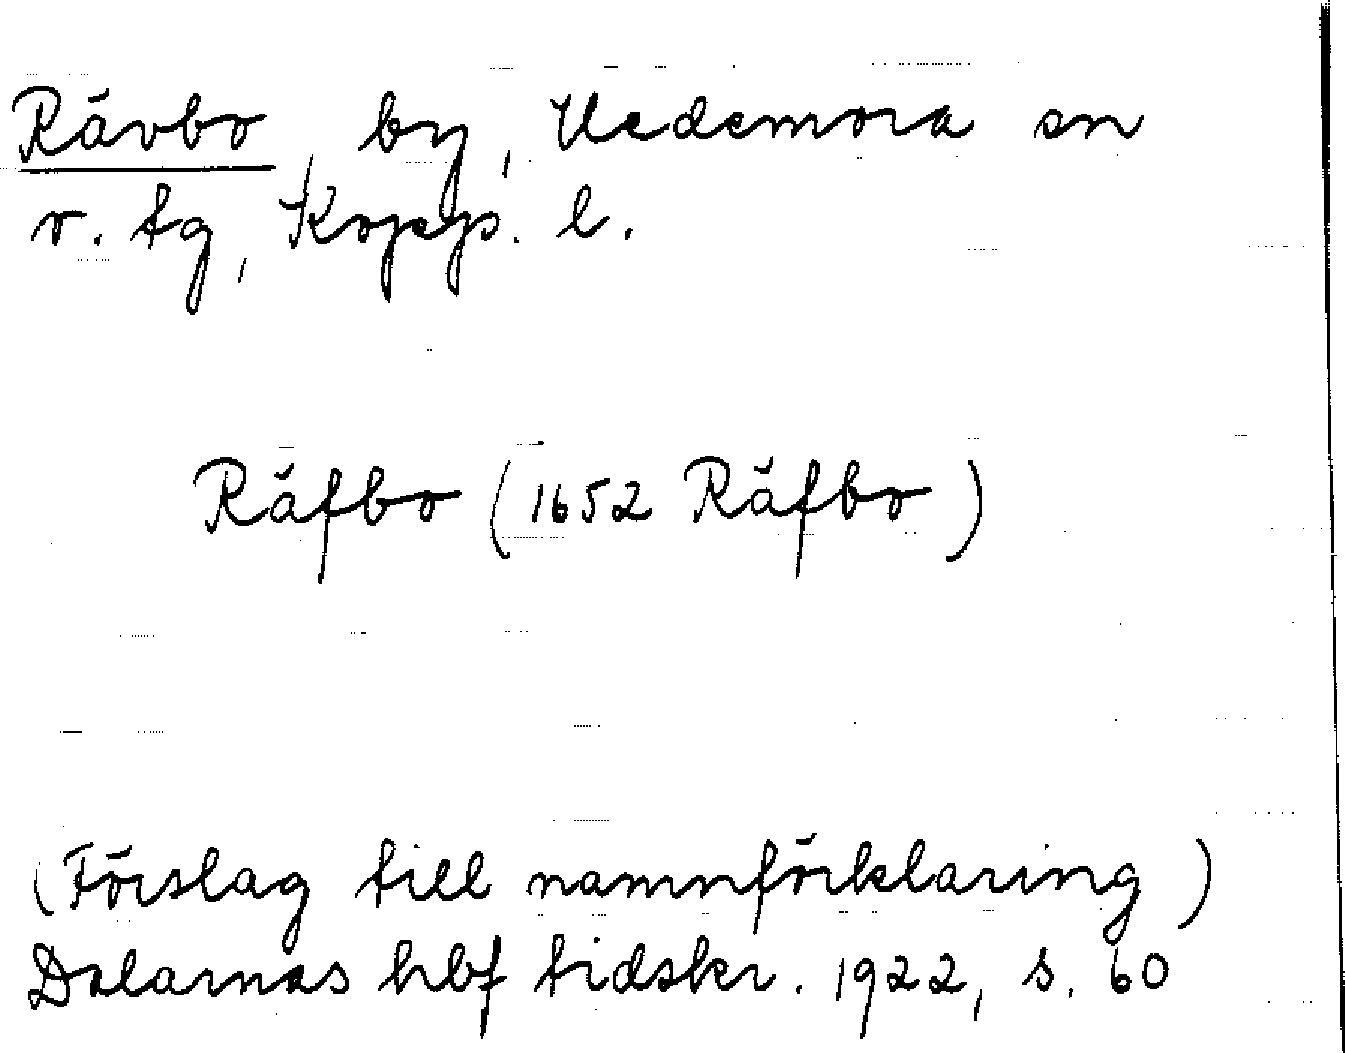 Rävbo, by, Vedemora sn
v. tg, Kopp. l.
Räfbo (1652 Räfbo)
(Förslag till namnförklaring)
Dalarnas hbf tidskr. 1922, s. 60